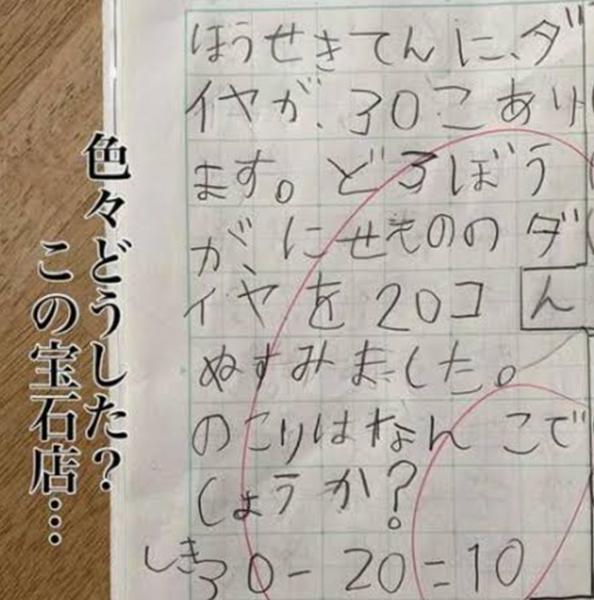 ほうせきてんに、ダ
イヤが、30こあり
ます。どろぼう
が、にせもののダ
イヤを20コ
ん
ぬすみました。
のこりはなんこで
しょうか?
しき30-20=10
色々どうした?
この宝石店…